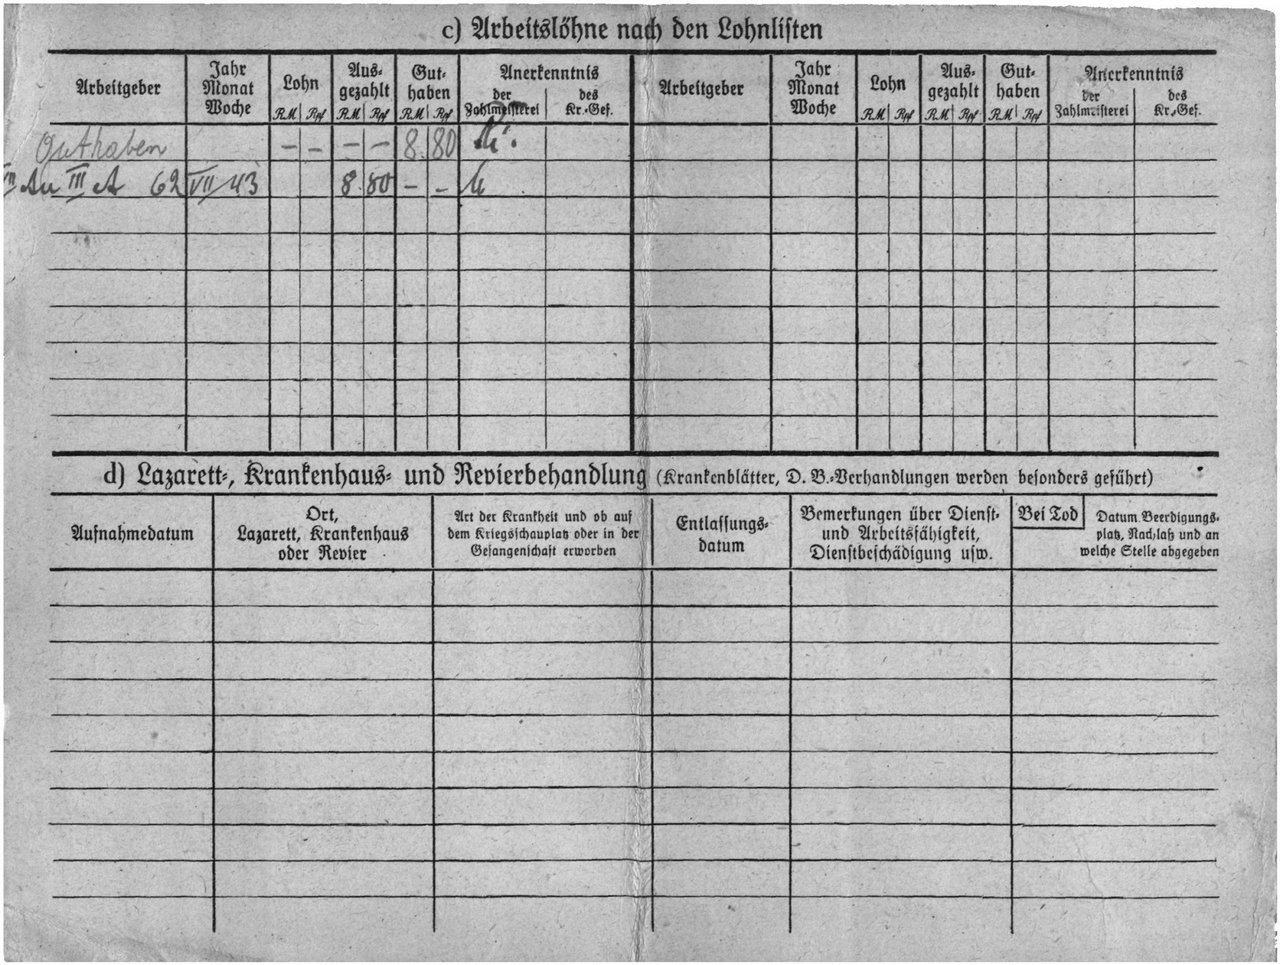 c) Arbeitslöhne nach den Lohnlisten
Arbeitgeber
Jahr
Monat
Woche
Lohn
RM Rpf
Aus-
gezahlt
RM Rpf
Gut-
haben
RM Rpf
Anerkenntnis
der
Zahlmeisterei
des
Kr.-Gef.
Arbeitgeber
Jahr
Monat
Woche
Lohn
RM Rpf
Aus-
gezahlt
RM Rpf
Gut-
haben
RM Rpf
Anerkenntnis
der
Zahlmeisterei
des
Kr.-Gef.
Guthaben – – – – 8.80
III A 62 VII/43 8 80 – –
d) Lazarett-, Krankenhaus- und Revierbehandlung (Krankenblätter, D. B.-Verhandlungen werden besonders geführt)
Aufnahmedatum
Ort,
Lazarett, Krankenhaus
oder Revier
Art der Krankheit und ob auf
dem Kriegsschauplatz oder in der
Gefangenschaft erworben
Entlassungs-
datum
Bemerkungen über Dienst-
und Arbeitsfähigkeit,
Dienstbeschädigung usw.
Bei Tod
Datum Beerdigungs-
platz, Nachlaß und an
welche Stelle abgegeben